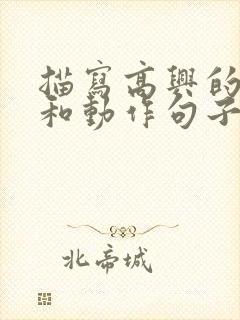 描寫高興的
和動作句子
北帝城